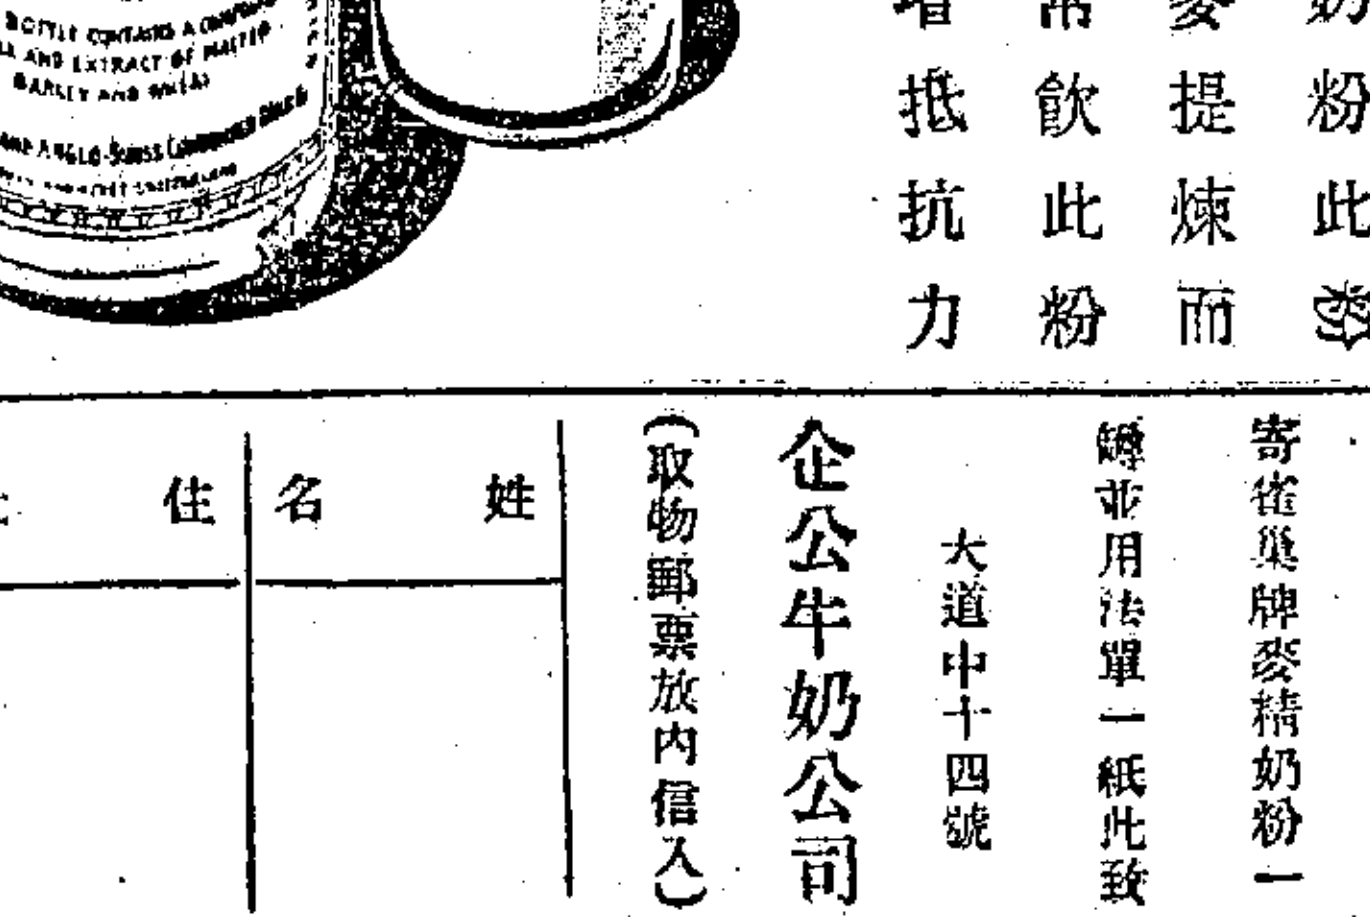 BOTTLE CONTAINS A
AND EXTRACT OF MALTED
BARLEY AND WHEAT
AND ANGLO-SWISS CONDENSED MILK
奶粉此
麥提煉而
常飲此粉
抵抗力
寄雀巢牌麥精奶粉一
罇並用法單一紙此致
大道中十四號
企公牛奶公司
(取物郵票放內信入)
姓名
住